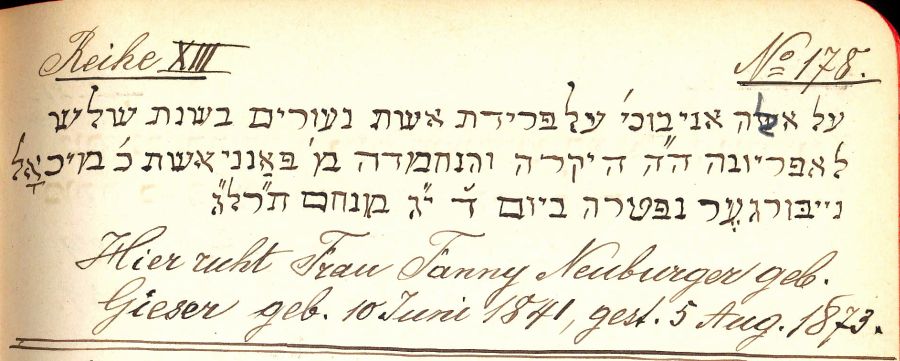 Reihe XIII No 178.
על אלה אני בוכי' על פרידת אשת נעורים בשנת שליש
לאפריונה ה"ה היקרה והנחמדה מ' פאנני אשת כ' מיכאל
נייבורגער נפטרה ביום ד' י"ג מנחם תרל"ג
Hier ruht Frau Fanny Neuburger geb.
Gieser geb. 10 Juni 1841, gest. 5 Aug. 1873.